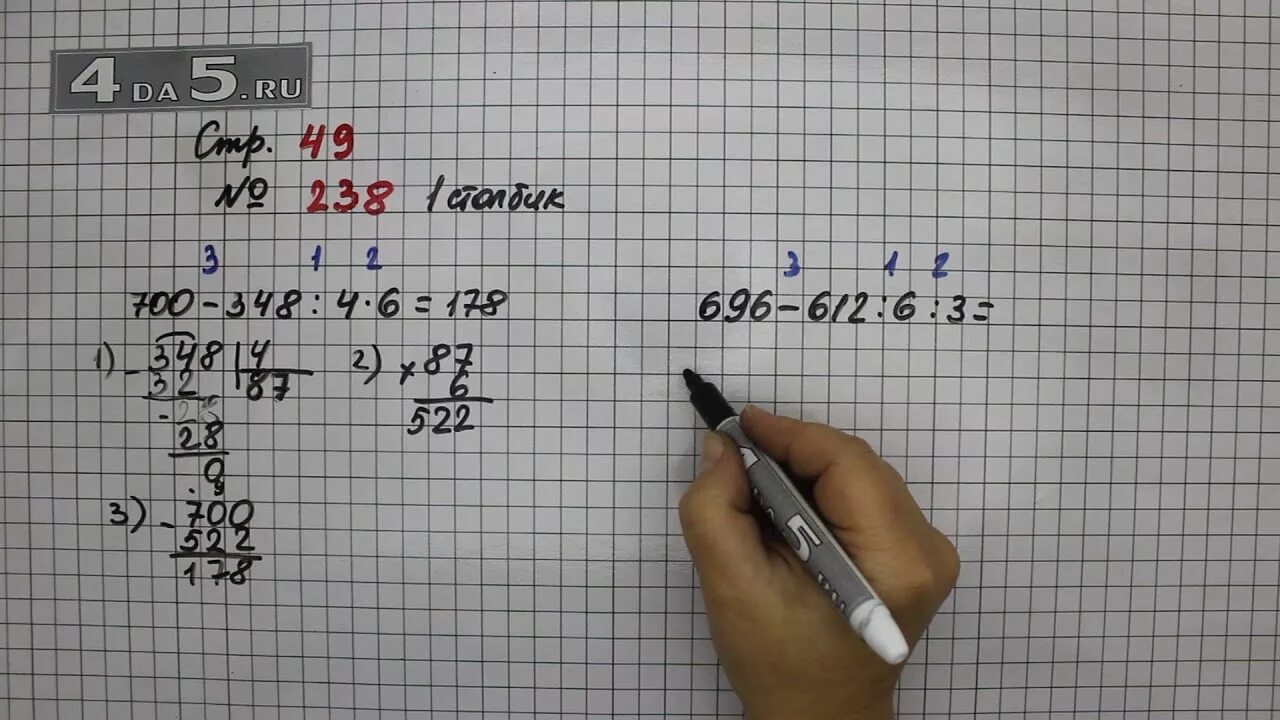 4 DA 5.RU
Стр. 49
№ 238 1 столбик
3 1 2
700 - 348 : 4 · 6 = 178
1) - 348 | 4
32 | 87
- 28
28
0
2) × 87
6
522
3) - 700
522
178
3 1 2
696 - 612 : 6 : 3 =